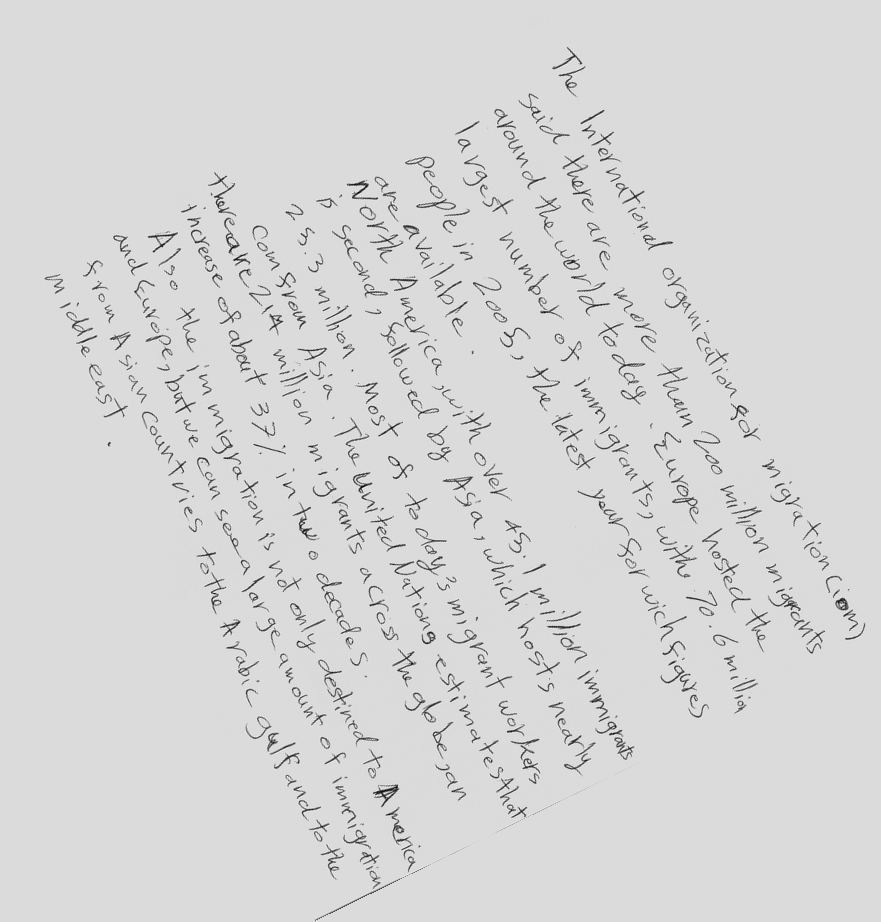 The International organization for migration (iom)
said there are more than 200 million migrants
around the world today. Europe hosted the
largest number of immigrants, with 70.6 million
people in 2005, the latest year for wich figures
are available.
North America, with over 45.1 million immigrants
is second, followed by Asia, which hosts nearly
25.3 million. Most of today's migrant workers
com from Asia. The United Nations estimates that
there are 214 million migrants across the globe, an
increase of about 37% in two decades.
Also the immigration is not only destined to America
and Europe, but we can see a large amount of immigration
from Asian countries to the Arabic gulf and to the
middle east.